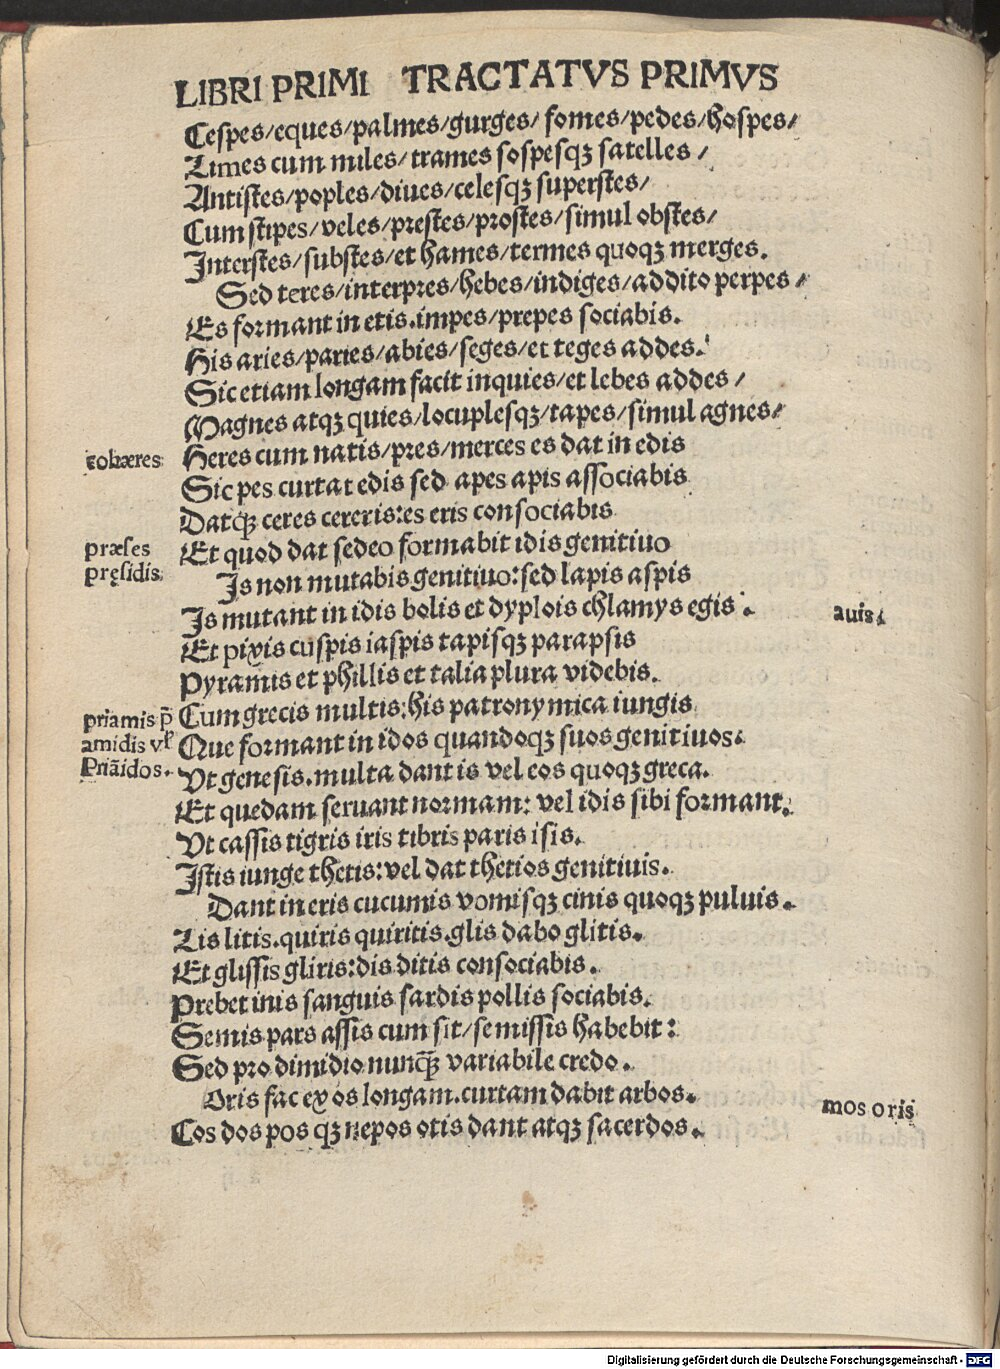 LIBRI PRIMI TRACTATVS PRIMVS
Cespes/eques/palmes/gurges/ fomes/pedes/hospes/
Limes cum miles/ trames sospesqꝫ satelles /
Antistes/poples/diues/celesqꝫ superstes/
Cum stipes/ veles/prestes/prostes/simul obstes/
Interstes/substes/et hames/termes quoqꝫ merges.
Sed teres/interpres/hebes/indiges/addito perpes /
Es formant in etis.impes/prepes sociabis.
His aries/paries/abies/seges/et teges addes.
Sic etiam longam facit inquies/et lebes addes /
Magnes atqꝫ quies/locuplesqꝫ/tapes/simul agnes/
cohæres
Heres cum natis/pres/merces es dat in edis
Sic pes curtat edis sed apes apis associabis
Datqꝫ ceres cereris:es eris consociabis
præses
Et quod dat sedeo formabit idis genitiuo
pręsidis
Is non mutabis genitiuo:sed lapis aspis
Is mutant in idis bolis et dyplois chlamys egis .
auis
Et pixis cuspis iaspis tapisqꝫ parapsis
Pyramis et phillis et talia plura videbis.
priamis p̄
Cum grecis multis:his patronymica iungis
amidis vꝉ
Que formant in idos quandoqꝫ suos genitiuos.
Priãidos.
Vt genesis.multa dant is vel eos quoqꝫ greca.
Et quedam seruant normam: vel idis sibi formant.
Vt cassis tigris iris tibris paris isis.
Istis iunge thetis:vel dat thetios genitiuis.
Dant in eris cucumis vomisqꝫ cinis quoqꝫ puluis.
Lis litis.quiris quiritis.glis dabo glitis.
Et glissis gliris:dis ditis consociabis.
Prebet inis sanguis sardis pollis sociabis.
Semis pars assis cum sit/semissis habebit:
Sed pro dimidio nunqꝫ̄ variabile credo.
Oris fac ex os longam.curtam dabit arbos.
mos oris
Cos dos pos qꝫ nepos otis dant atqꝫ sacerdos.
Digitalisierung gefördert durch die Deutsche Forschungsgemeinschaft - DFG